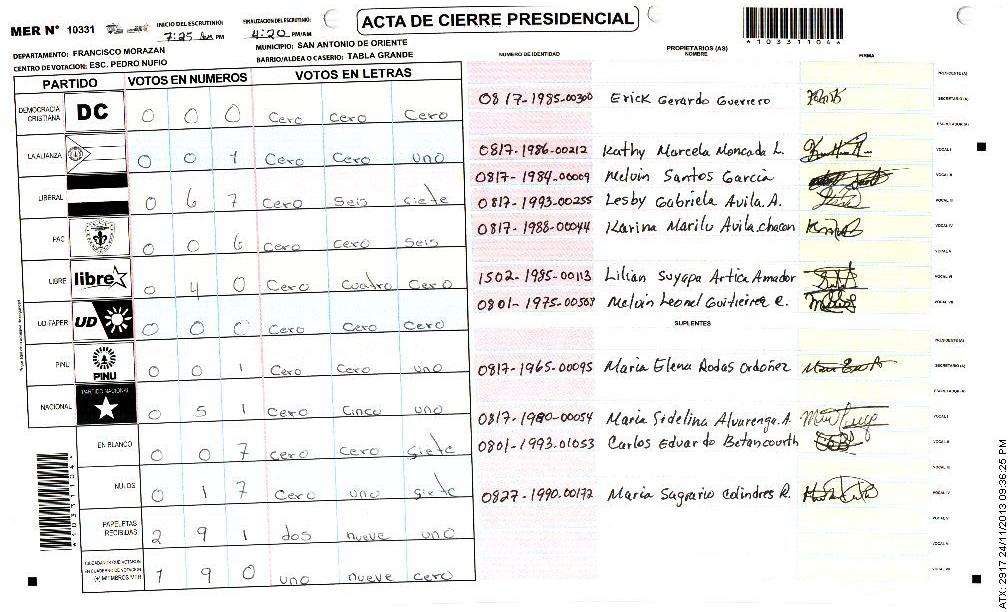 MER N° 10331
INICIO DEL ESCRUTINIO: 7:25 am PM
FINALIZACION DEL ESCRUTINIO: 4:20 PM/AM
ACTA DE CIERRE PRESIDENCIAL
4103311044
DEPARTAMENTO: FRANCISCO MORAZAN
MUNICIPIO: SAN ANTONIO DE ORIENTE
CENTRO DE VOTACION: ESC. PEDRO NUFIO
BARRIO/ALDEA O CASERIO: TABLA GRANDE
PARTIDO VOTOS EN NUMEROS VOTOS EN LETRAS
DEMOCRACIA CRISTIANA DC 0 0 0 Cero Cero Cero
LA ALIANZA 0 0 1 Cero Cero uno
LIBERAL 0 6 7 Cero Seis siete
PAC 0 0 6 Cero Cero Seis
LIBRE libre 0 4 0 Cero Cuatro Cero
UD-FAPER UD 0 0 0 Cero Cero Cero
PINU PINU 0 0 1 Cero Cero uno
NACIONAL PARTIDO NACIONAL 0 5 1 Cero Cinco uno
EN BLANCO 0 0 7 Cero Cero Siete
NULOS 0 1 7 Cero uno Siete
PAPELETAS RECIBIDAS 2 9 1 dos nueve uno
CIUDADANOS QUE VOTARON EN CUADERNO DE VOTACION (+) MIEMBROS MER 1 9 0 uno nueve cero
NUMERO DE IDENTIDAD PROPIETARIOS (AS) NOMBRE FIRMA
PRESIDENTE(A)
0817-1985-00300 Erick Gerardo Guerrero SECRETARIO(A)
ESCRUTADOR(A)
0817-1986-00212 Kathy Marcela Moncada L. VOCAL I
0817-1984-00009 Melvin Santos Garcia VOCAL II
0817-1993-00255 Lesby Gabriela Avila.A. VOCAL III
0817-1988-00044 Karina Marilu Avila.chacon VOCAL IV
VOCAL V
1502-1985-00113 Lilian Suyapa Artica Amador VOCAL VI
0801-1975-00503 Melvin Leonel VOCAL VII
SUPLENTES
PRESIDENTE(A)
0817-1965-00095 Maria Elena Rodas Ordoñez SECRETARIO(A)
ESCRUTADOR(A)
0817-1980-00054 Maria Sidelina Alvarenga.A VOCAL I
0801-1993.01053 Carlos Eduardo Betancourth VOCAL II
VOCAL III
0827-1990-00172 Maria Sagrario Colindres R. VOCAL IV
VOCAL V
VOCAL VI
VOCAL VII
ATX: 2917 24/11/2013 09:36:25 PM